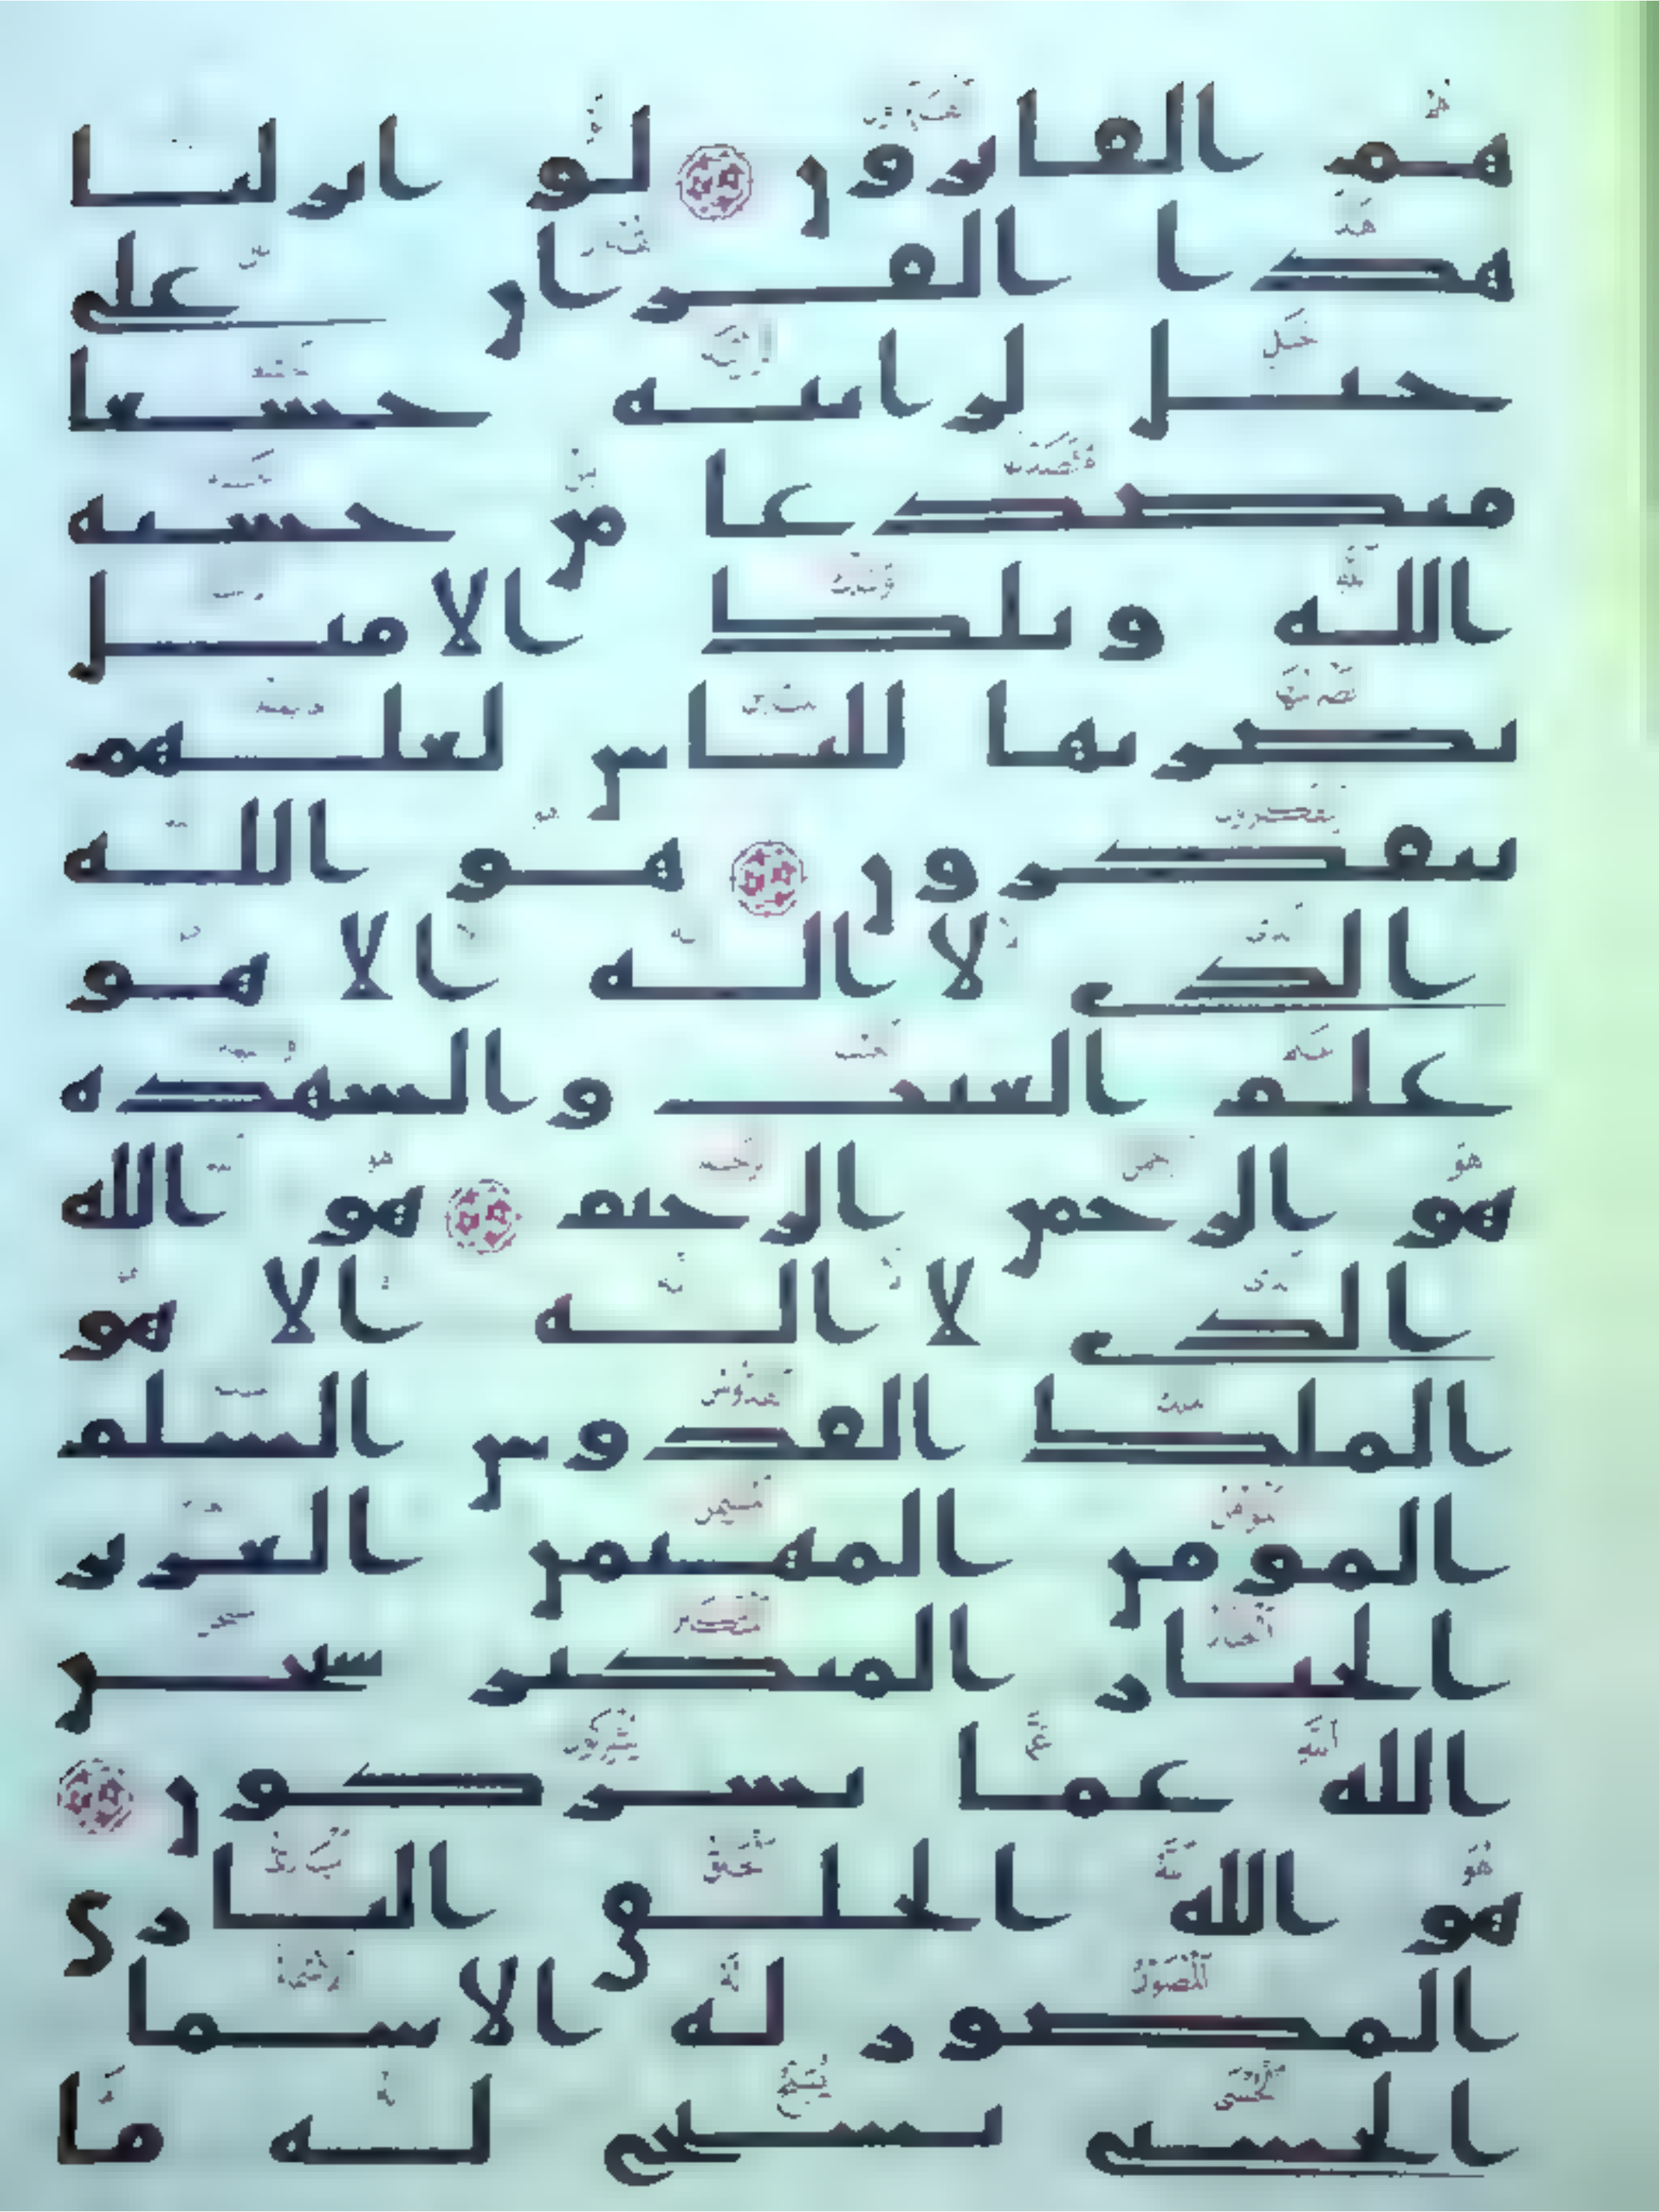 هم الفايزون لو انزلنا
هذا القران على
جبل لرايته خشعا
متصدعا من خشية
الله وتلك الامثل
نضربها للناس لعلهم
يتفكرون هو الله
الذي لا اله الا هو
علم الغيب والشهدة
هو الرحمن الرحيم هو الله
الذي لا اله الا هو
الملك القدوس السلم
المومن المهيمن العزيز
الجبار المتكبر سبحن
الله عما يشركون
هو الله الخلق الباري
المصور له الاسما
الحسنى يسبح له ما